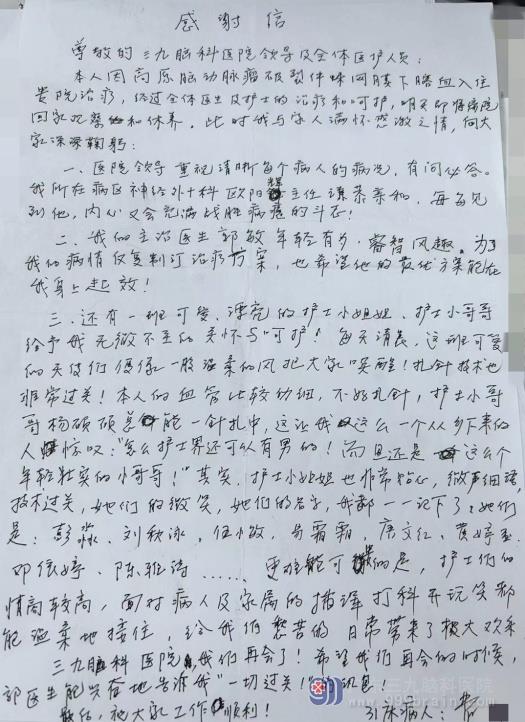 感谢信
尊敬的三九脑科医院领导及全体医护人员:
本人因高原脑动脉瘤破裂伴蛛网膜下腔血入住
贵院治疗,经过全体医生及护士的治疗和呵护,明天即将
回家和休养。此时我与家人满怀感激之情,向大
家深深鞠躬:
一、医院领导重视清晰每个病人的病况,有问必答。
我所在病区神经外十科欧阳主任谦恭亲和,每每见
到他,内心又会充满战胜病的斗志!
二、我的主治医生郭敏年轻有为,睿智风趣。为了
我的病情反复制订治疗方案,也希望他的最优方案能在
我身上起效!
三、还有一班可爱、漂亮的护士小姐姐、护士小哥哥
给予我无微不至的关怀与"呵护!每天清晨,这班可爱
的天使们便像一股温柔的风把大家唤醒!扎针技术也
非常过关!本人的血管比较幼细,不好扎针,护士小哥
哥杨硕硕总能一针扎中,这让我这么一个从乡下来的
人惊叹:"怎么护士界还可以有男的!而且还是这么个
年轻壮实的小哥哥!"其实,护士小姐姐也非常贴心,微声细语,
技术过关,她们的微笑,她们的名字,我都一一记下了,她们
是:彭淼、刘秋泳、伍小敏、易霜霜、唐文红、黄婷玉、
邓依婷、陈雅诗……更难能可贵的是,护士们的
情商较高,面对病人及家属的插诨打科开玩笑都
能温柔地接住,给我们愁苦的日常带来了极大欢乐
三九脑科医院,我们再会了!希望我们再会的时候,
郭医生能兴奋地告诉我"一切过关!"的讯息!
最后,祝大家工作顺利!
病人:
三九脑科医院
www.999brain.com